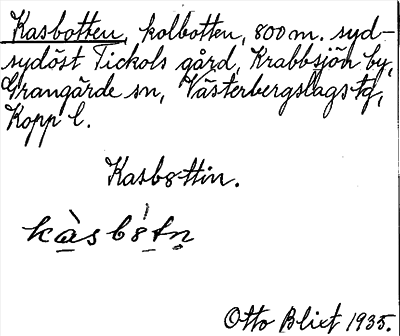 Kasbotten, kolbotten, 800 m. syd-
sydöst Tickols gård, Krabbsjön by,
Grangärde sn, Västerbergslags tg,
Kopp l.
Kasb8ttin.
kàsb8́tn̥
Otto Blixt 1935.